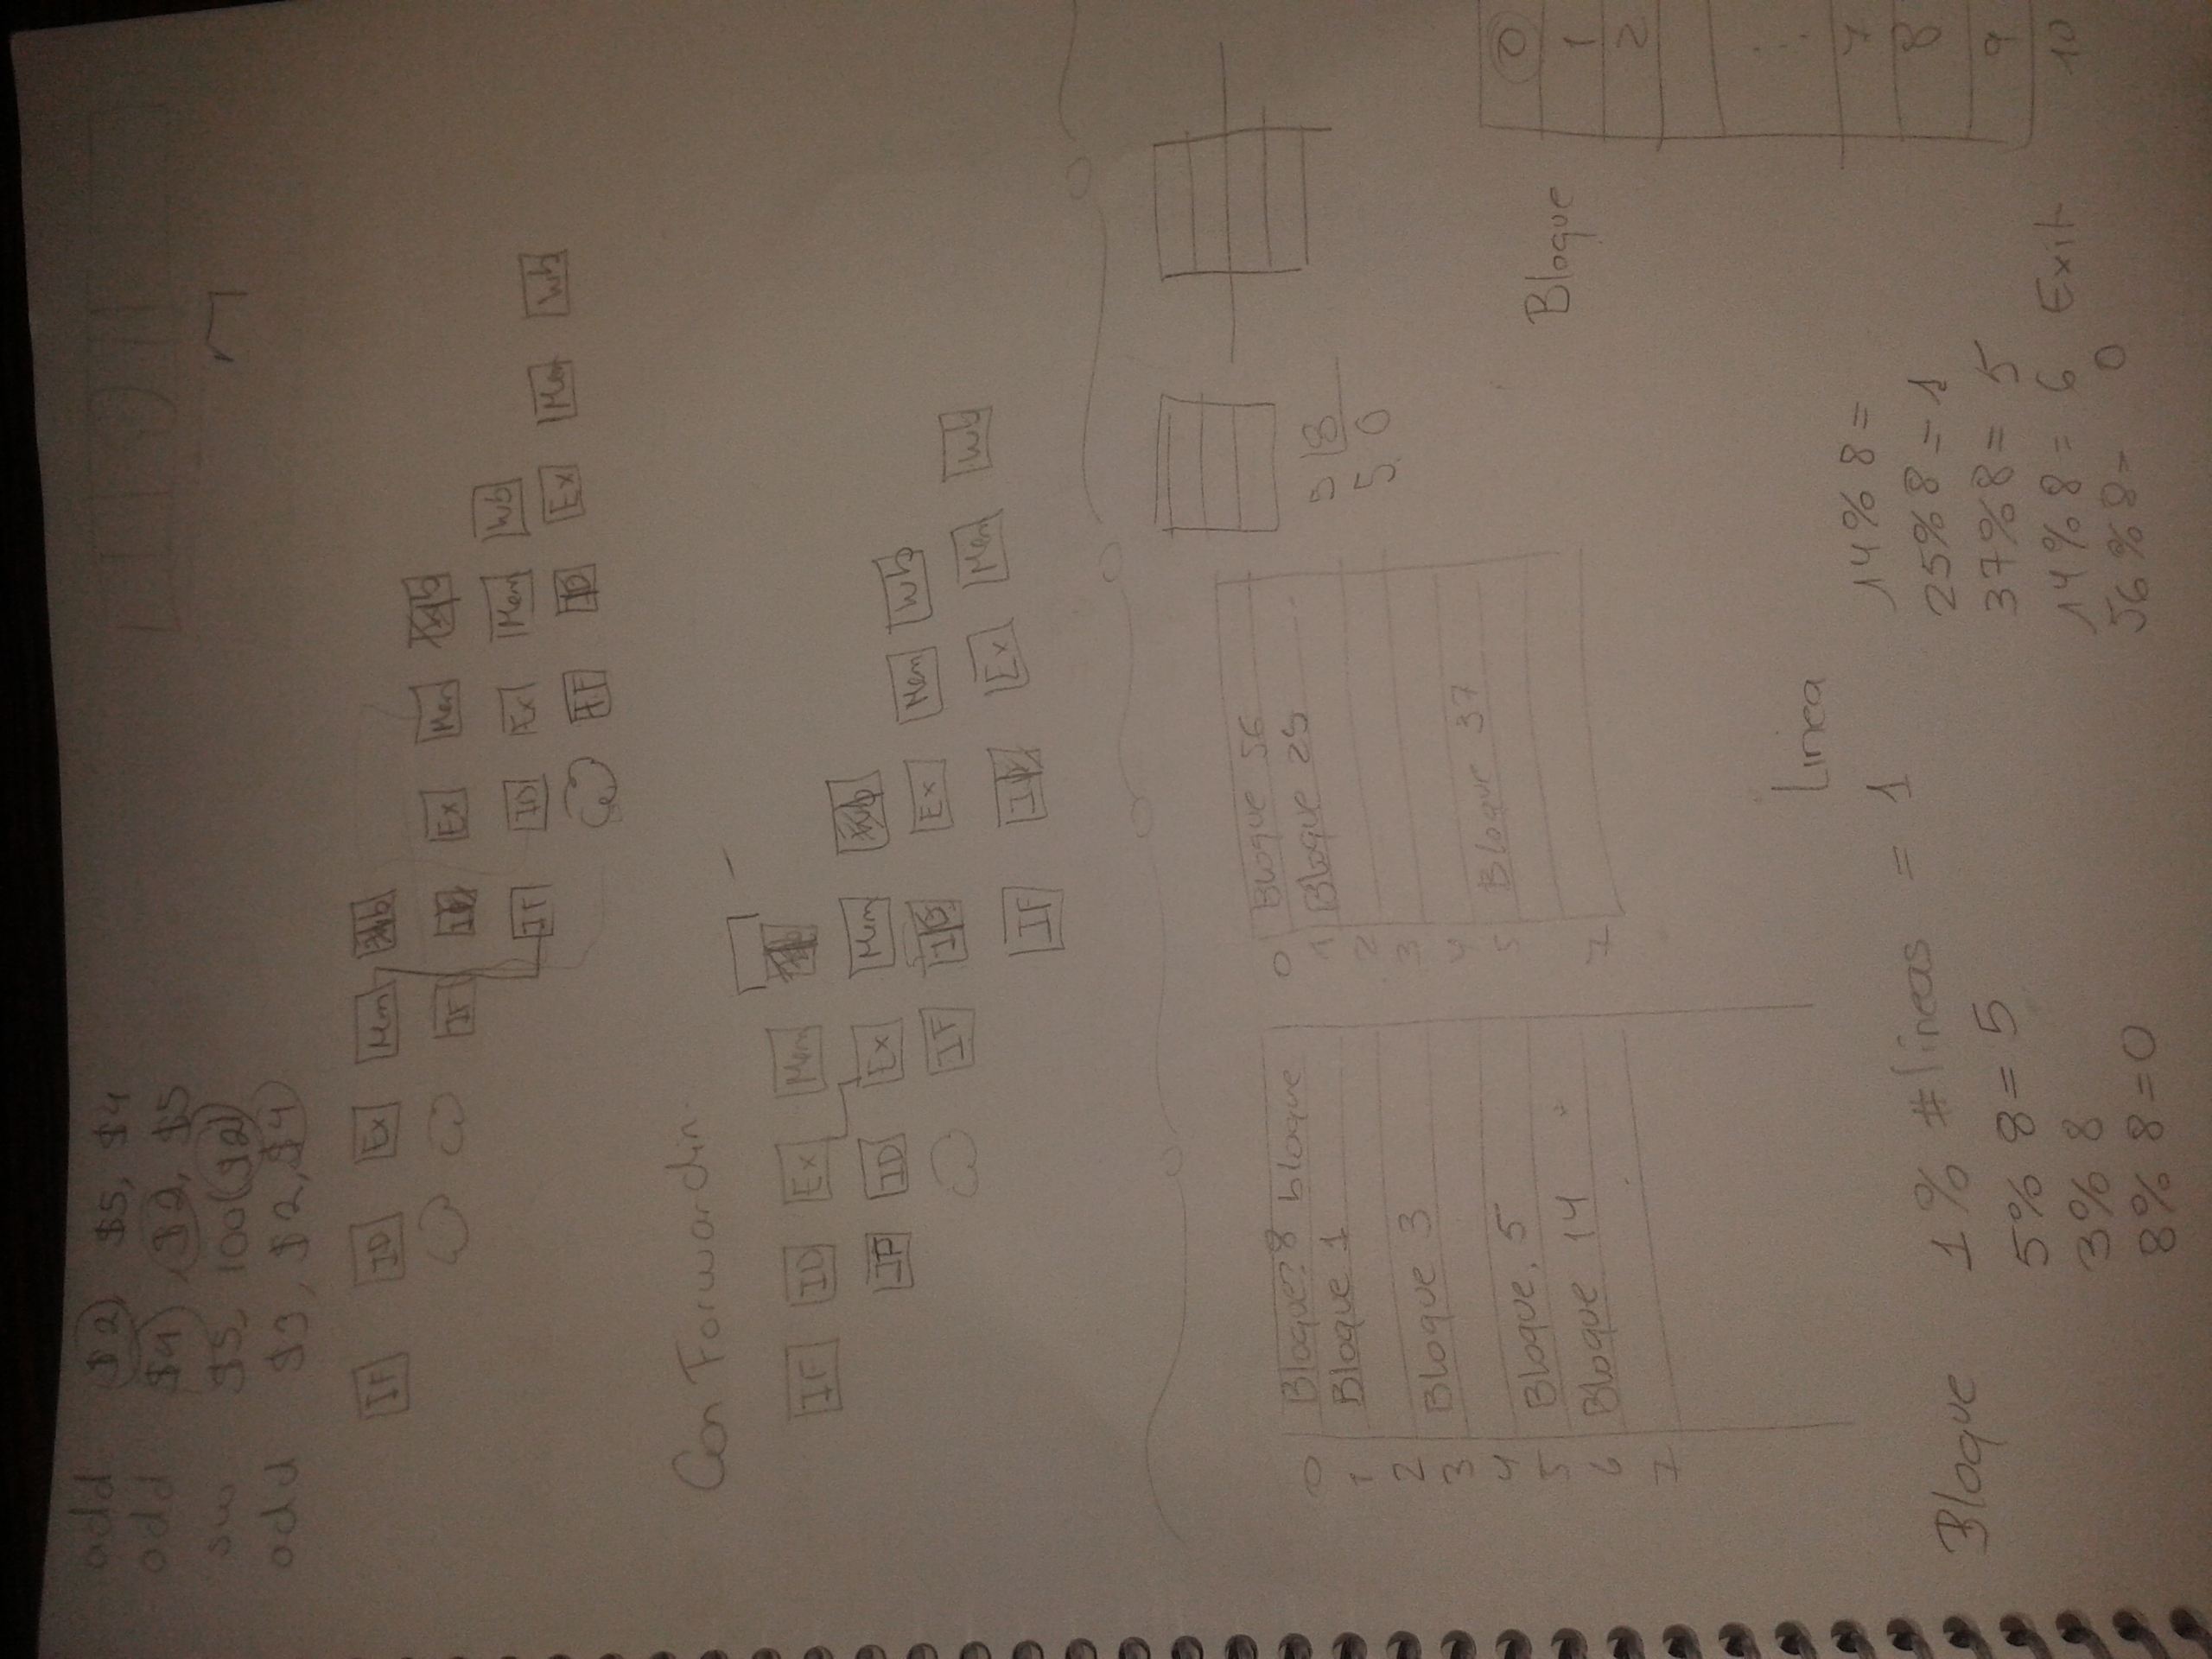 add $2, $5, $4
add $4, $2, $5
sw $5, 100($2)
add $3, $2, $4
IF ID Ex Mem Wb
IF ID Ex Mem Wb
IF ID Ex Mem Wb
IF ID Ex Mem Wb
Con Forwardin.
IF ID Ex Mem Wb
IF ID Ex Mem Wb
IF ID Ex Mem Wb
IF ID Ex Mem Wb
0 Bloque 8 bloque
1 Bloque 1
2
3 Bloque 3
4
5 Bloque. 5
6 Bloque 14
7
0 Bloque 56
1 Bloque 25
2
3
4
5 Bloque 37
7
5 8
5 0
Bloque
0
1
2
7
8
9
10
Linea
Bloque 1% #lineas = 1
5% 8 = 5
3% 8
8% 8 = 0
14% 8 =
25% 8 = 1
37% 8 = 5
14% 8 = 6 Exit
56 % 8 = 0